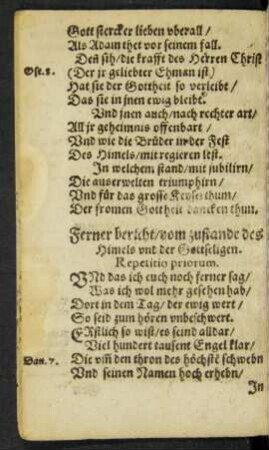 Gott stercker lieben vberall /
Als Adam thet vor seinem fall.
Deñ sih / die krafft des Herren Christ
Ose. 2. (Der jr geliebter Ehman ist)
Hat sie der Gottheit so verleibt /
Das sie in jnen ewig bleibt.
Vnd jnen auch / nach rechter art /
All jr geheimnis offenbart /
Vnd wie die Brüder inder Fest
Des Himels / mit regieren lest.
In welchem stand / mit jubilirn /
Die auserwelten triumphirn /
Vnd für das grosse Keyserthum /
Der fromen Gottheit dancken thun.
Ferner bericht / vom zustande des
Himels vnd der Gottseligen.
Repetitio priorum.
VNd das ich euch noch ferner sag /
Was ich wol mehr gesehen hab /
Dort in dem Tag / der ewig wert /
So seid zum hören vnbeschwert.
ERstlich so wist / es seind alldar /
Viel hundert tausent Engel klar /
Dan. 7. Die vm̃ den thron des höchstẽ schwebn
Vnd seinen Namen hoch erhebn /
In